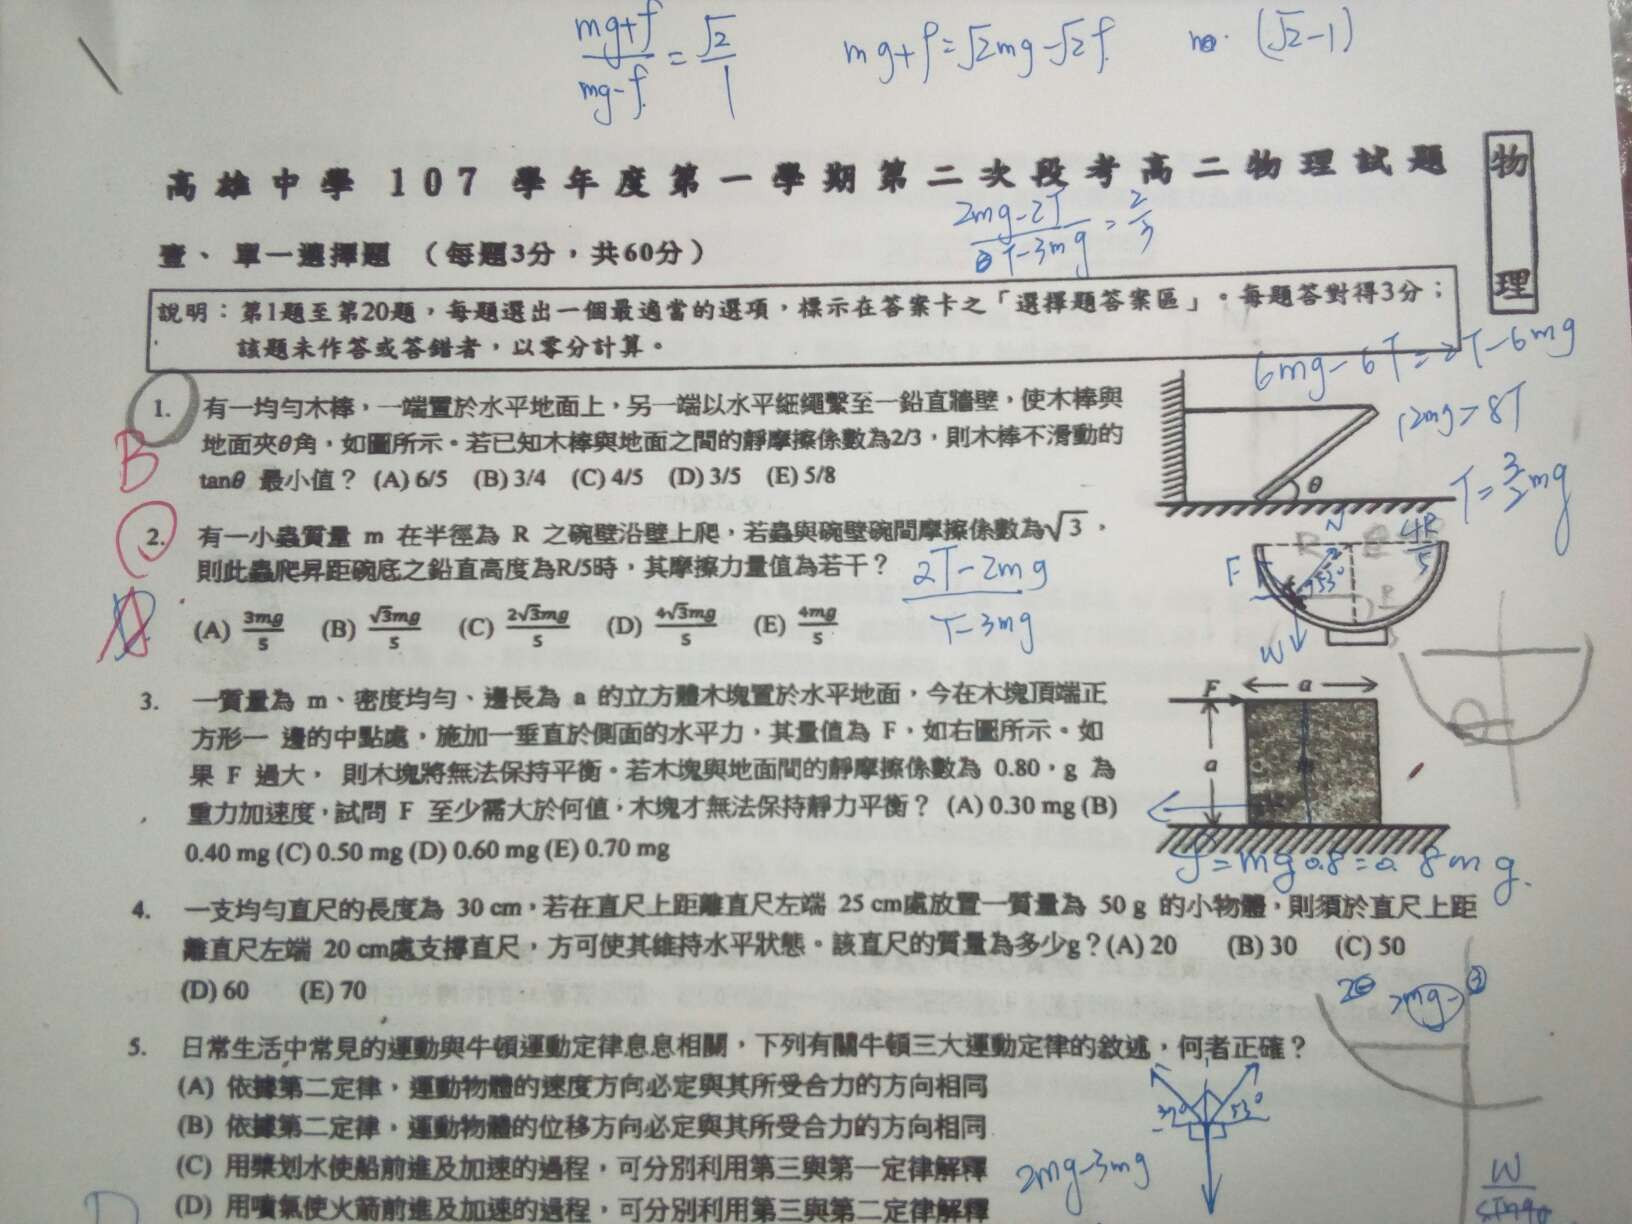 mg+f / mg-f = √2 / 1
mg+f=√2mg-√2f
(√2-1)
高雄中學 107 學年度第一學期第二次段考高二物理試題
物理
2mg-2T / T-3mg = 2/3
壹、單一選擇題 (每題3分，共60分)
說明：第1題至第20題，每題選出一個最適當的選項，標示在答案卡之「選擇題答案區」。每題答對得3分；
該題未作答或答錯者，以零分計算。
6mg-6T=2T-6mg
12mg=8T
T=3/2mg
B
1. 有一均勻木棒，一端置於水平地面上，另一端以水平細繩繫至一鉛直牆壁，使木棒與
地面夾θ角，如圖所示。若已知木棒與地面之間的靜摩擦係數為2/3，則木棒不滑動的
tanθ 最小值？ (A) 6/5 (B) 3/4 (C) 4/5 (D) 3/5 (E) 5/8
θ
2. 有一小蟲質量 m 在半徑為 R 之碗壁沿壁上爬，若蟲與碗壁碗間摩擦係數為√3，
則此蟲爬昇距碗底之鉛直高度為R/5時，其摩擦力量值為若干？
2T-2mg / T-3mg
(A) 3mg/5 (B) √3mg/5 (C) 2√3mg/5 (D) 4√3mg/5 (E) 4mg/5
A
N
F
R
4R/5
53°
W
3. 一質量為 m、密度均勻、邊長為 a 的立方體木塊置於水平地面，今在木塊頂端正
方形一 邊的中點處，施加一垂直於側面的水平力，其量值為 F，如右圖所示。如
果 F 過大， 則木塊將無法保持平衡。若木塊與地面間的靜摩擦係數為 0.80，g 為
重力加速度，試問 F 至少需大於何值，木塊才無法保持靜力平衡？ (A) 0.30 mg (B)
0.40 mg (C) 0.50 mg (D) 0.60 mg (E) 0.70 mg
F
a
a
f=mg0.8=0.8mg.
4. 一支均勻直尺的長度為 30 cm，若在直尺上距離直尺左端 25 cm處放置一質量為 50 g 的小物體，則須於直尺上距
離直尺左端 20 cm處支撐直尺，方可使其維持水平狀態。該直尺的質量為多少g？(A) 20 (B) 30 (C) 50
(D) 60 (E) 70
5. 日常生活中常見的運動與牛頓運動定律息息相關，下列有關牛頓三大運動定律的敘述，何者正確？
(A) 依據第二定律，運動物體的速度方向必定與其所受合力的方向相同
(B) 依據第二定律，運動物體的位移方向必定與其所受合力的方向相同
(C) 用槳划水使船前進及加速的過程，可分別利用第三與第一定律解釋
(D) 用噴氣使火箭前進及加速的過程，可分別利用第三與第二定律解釋
37°
53°
2mg-3mg
W
D